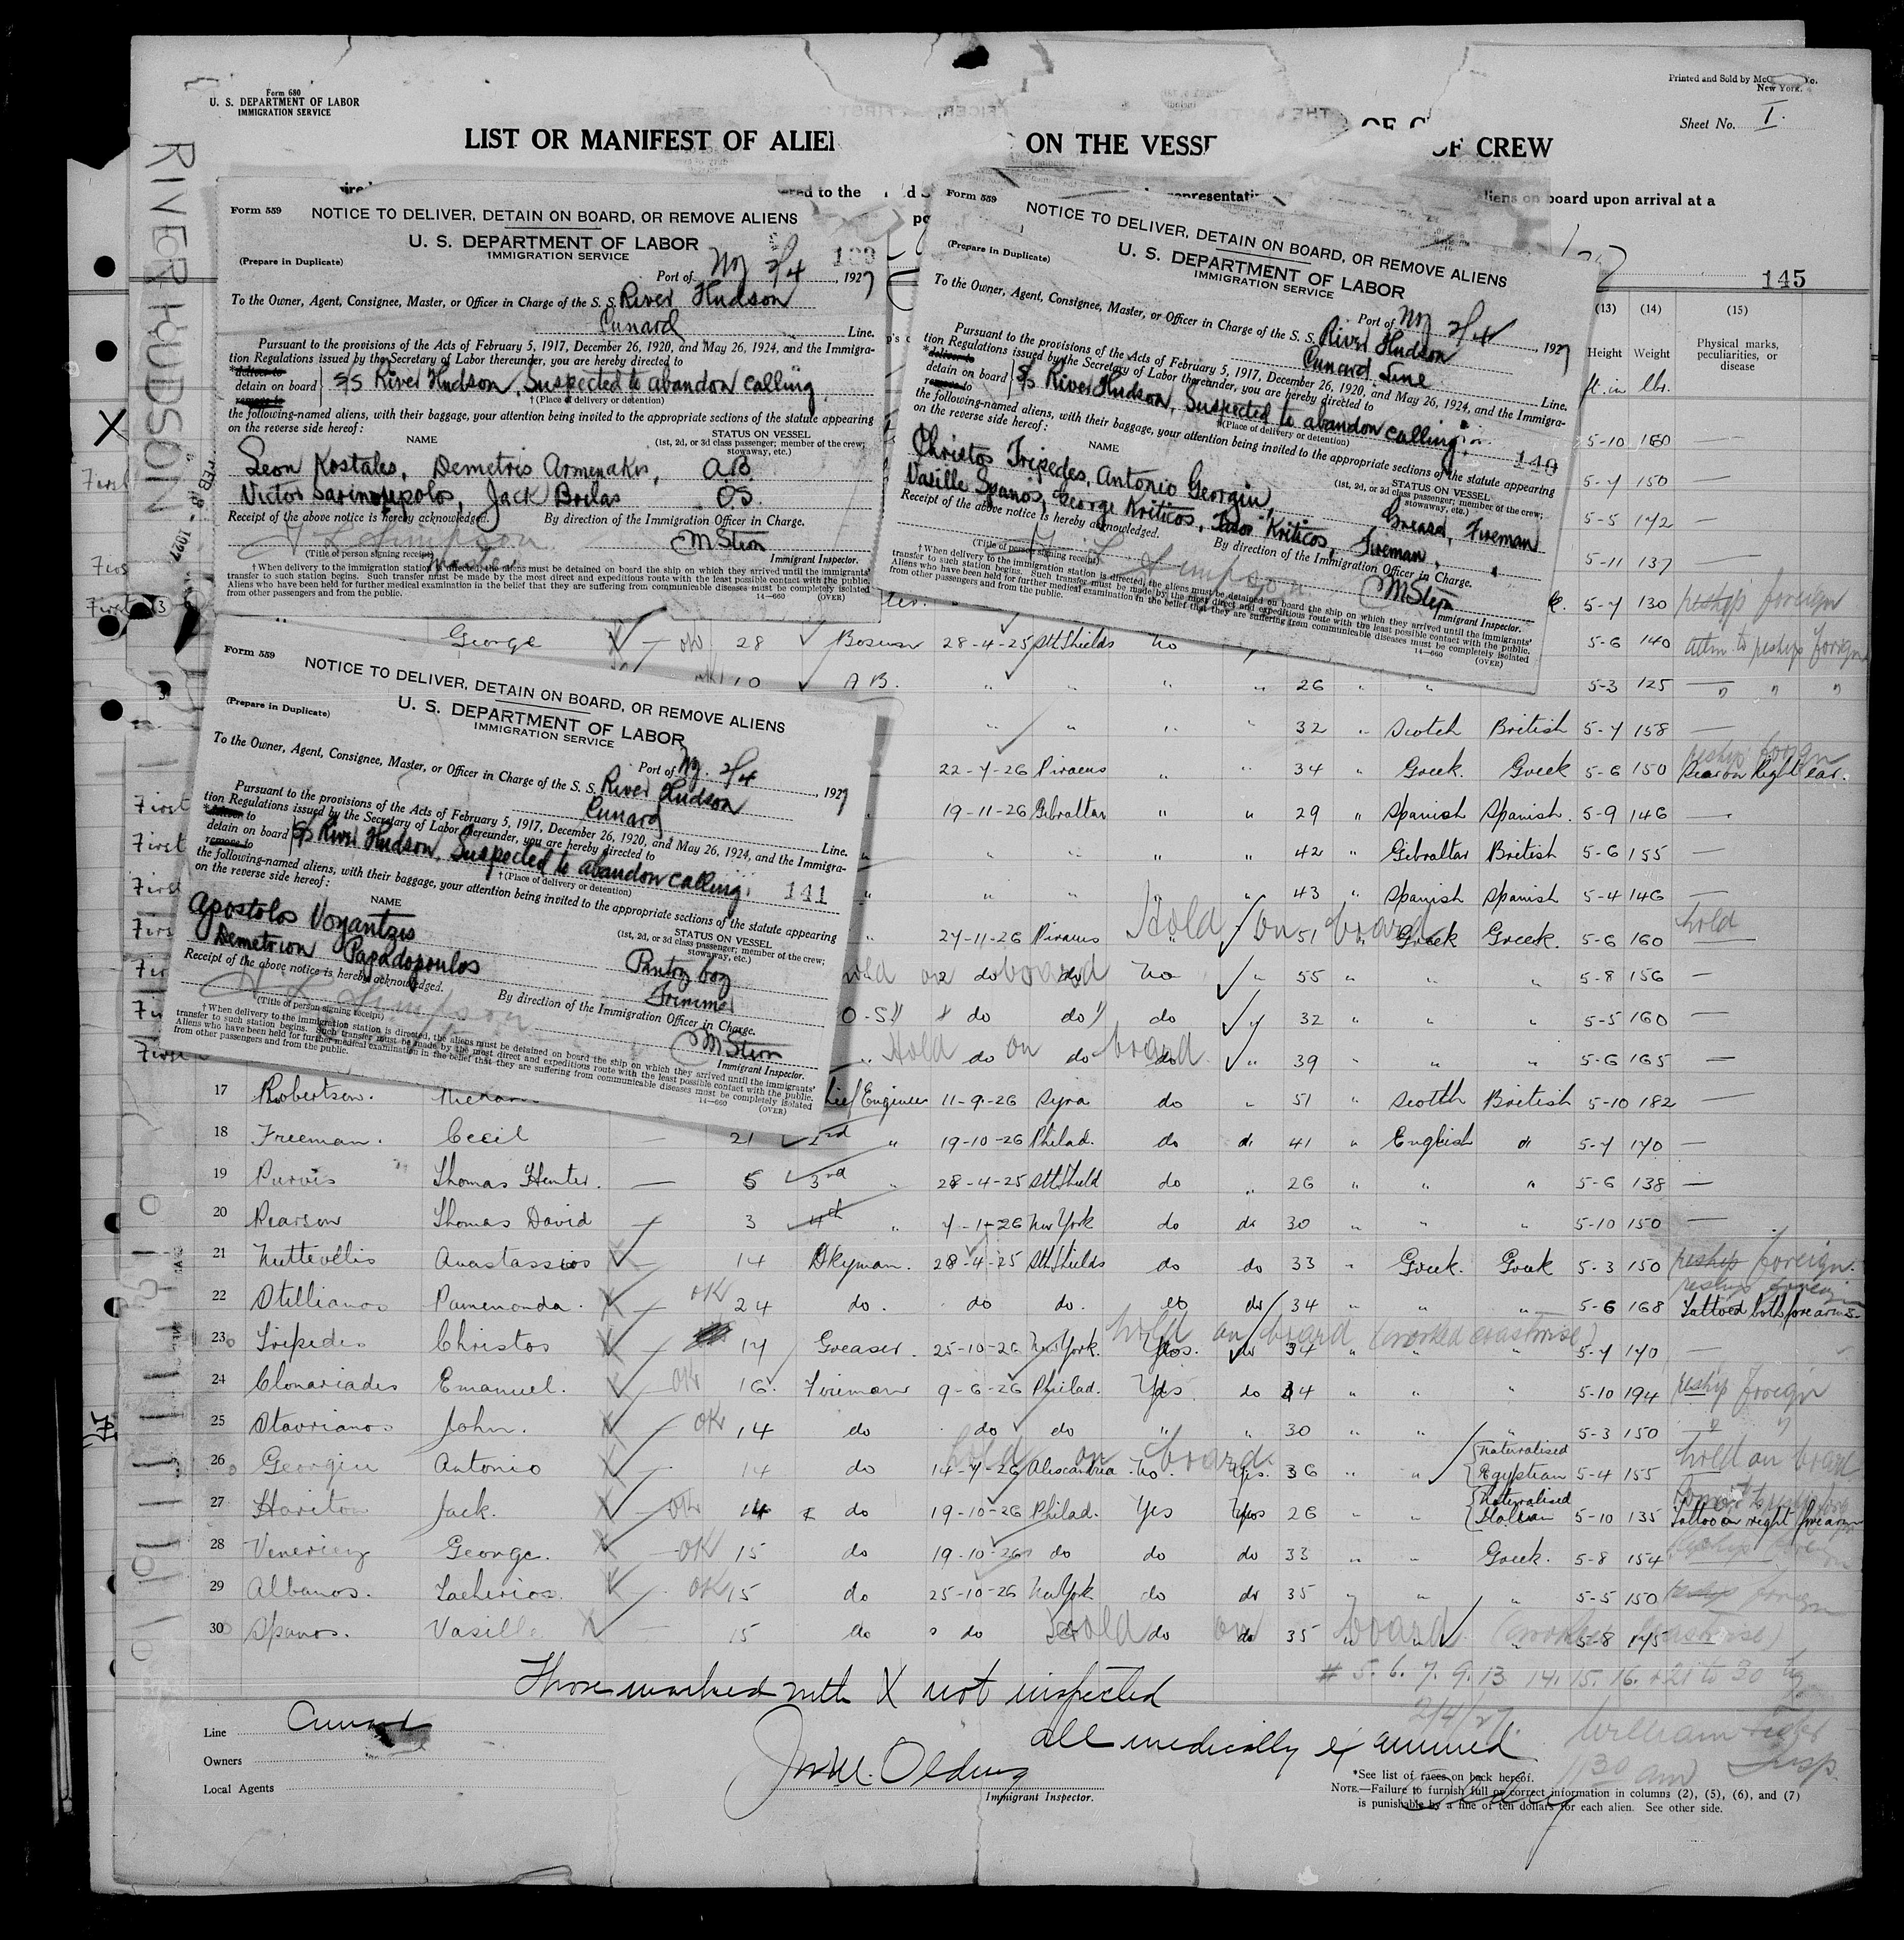 Form 680
U. S. DEPARTMENT OF LABOR
IMMIGRATION SERVICE
Printed and Sold by
New York.
Sheet No. I.
LIST OR MANIFEST OF ALIE
ON THE VESSE
OF CREW
ered to the
board upon arrival at a
RIVER HUDSON
FEB 8 - 1927
145
Form 559
NOTICE TO DELIVER, DETAIN ON BOARD, OR REMOVE ALIENS
U. S. DEPARTMENT OF LABOR
IMMIGRATION SERVICE
(Prepare in Duplicate)
Port of NY 2/4, 1927
To the Owner, Agent, Consignee, Master, or Officer in Charge of the S. S. River Hudson
Cunard Line.
Pursuant to the provisions of the Acts of February 5, 1917, December 26, 1920, and May 26, 1924, and the Immigra-
tion Regulations issued by the Secretary of Labor thereunder, you are hereby directed to
*deliver to
detain on board S/S River Hudson, Suspected to abandon calling
remove to
†(Place of delivery or detention)
the following-named aliens, with their baggage, your attention being invited to the appropriate sections of the statute appearing
on the reverse side hereof:
NAME
STATUS ON VESSEL
(1st, 2d, or 3d class passenger; member of the crew;
stowaway, etc.)
Leon Kostales, Demetris Armenakis, A.B.
Victor Jack Boilas O.S.
Receipt of the above notice is hereby acknowledged.
By direction of the Immigration Officer in Charge.
Simpson
(Title of person signing receipt)
Master
M Stein
Immigrant Inspector.
†When delivery to the immigration station is directed, the aliens must be detained on board the ship on which they arrived until the immigrants'
transfer to such station begins. Such transfer must be made by the most direct and expeditious route with the least possible contact with the public.
Aliens who have been held for further medical examination in the belief that they are suffering from communicable diseases must be completely isolated
from other passengers and from the public.
14—660
(OVER)
Form 559
NOTICE TO DELIVER, DETAIN ON BOARD, OR REMOVE ALIENS
U. S. DEPARTMENT OF LABOR
IMMIGRATION SERVICE
(Prepare in Duplicate)
Port of NY 2/4, 1927
To the Owner, Agent, Consignee, Master, or Officer in Charge of the S. S. River Hudson
Cunard Line
Line.
Pursuant to the provisions of the Acts of February 5, 1917, December 26, 1920, and May 26, 1924, and the Immigra-
tion Regulations issued by the Secretary of Labor thereunder, you are hereby directed to
*deliver to
detain on board S/S River Hudson, Suspected to abandon calling.
remove to
†(Place of delivery or detention)
140
the following-named aliens, with their baggage, your attention being invited to the appropriate sections of the statute appearing
on the reverse side hereof:
NAME
STATUS ON VESSEL
(1st, 2d, or 3d class passenger; member of the crew;
stowaway, etc.)
Christos Tripedes, Antonio Georgiu, Greaser, Fireman
Vasille Spanos, George Kriticos, Kriticos, Fireman,
Receipt of the above notice is hereby acknowledged.
By direction of the Immigration Officer in Charge.
Simpson
(Title of person signing receipt)
M Stein
Immigrant Inspector.
†When delivery to the immigration station is directed, the aliens must be detained on board the ship on which they arrived until the immigrants'
transfer to such station begins. Such transfer must be made by the most direct and expeditious route with the least possible contact with the public.
Aliens who have been held for further medical examination in the belief that they are suffering from communicable diseases must be completely isolated
from other passengers and from the public.
14—660
(OVER)
Form 559
NOTICE TO DELIVER, DETAIN ON BOARD, OR REMOVE ALIENS
U. S. DEPARTMENT OF LABOR
IMMIGRATION SERVICE
(Prepare in Duplicate)
Port of NY. 2/4, 1927
To the Owner, Agent, Consignee, Master, or Officer in Charge of the S. S. River Hudson
Cunard Line.
Pursuant to the provisions of the Acts of February 5, 1917, December 26, 1920, and May 26, 1924, and the Immigra-
tion Regulations issued by the Secretary of Labor thereunder, you are hereby directed to
*deliver to
detain on board S/S River Hudson, Suspected to abandon calling.
remove to
†(Place of delivery or detention)
141
the following-named aliens, with their baggage, your attention being invited to the appropriate sections of the statute appearing
on the reverse side hereof:
NAME
STATUS ON VESSEL
(1st, 2d, or 3d class passenger; member of the crew;
stowaway, etc.)
Apostolos Voyantzis Pantry boy
Demetrion Papadopoulos Trimmer
Receipt of the above notice is hereby acknowledged.
By direction of the Immigration Officer in Charge.
Simpson
(Title of person signing receipt)
M Stein
Immigrant Inspector.
†When delivery to the immigration station is directed, the aliens must be detained on board the ship on which they arrived until the immigrants'
transfer to such station begins. Such transfer must be made by the most direct and expeditious route with the least possible contact with the public.
Aliens who have been held for further medical examination in the belief that they are suffering from communicable diseases must be completely isolated
from other passengers and from the public.
14—660
(OVER)
(13) (14) (15)
Height Weight Physical marks, peculiarities, or disease
ft. in lbs.
5-10 160 —
5-7 150 —
5-5 142 —
5-11 137 —
5-7 130 reship foreign
George OK 28 Bosun 28-4-25 Sth Shields No 5-6 140 reships foreign
10 A B. " " " 26 " " 5-3 125 — " " "
" " " " 32 " Scotch British 5-7 158 —
22-7-26 Piraeus " " 34 " Greek. Greek 5-6 150 reship foreign Scar on Right ear.
19-11-26 Gibraltar " " 29 " Spanish Spanish. 5-9 146 —
" " " " 42 " Gibraltar British 5-6 155 —
" " " " 43 " Spanish Spanish 5-4 146 —
" 27-11-26 Piraeus Hold on board 51 " Greek Greek. 5-6 160 hold
hold on board do do No " 55 " " " 5-8 156 —
O.S. do do do " 32 " " " 5-5 160 —
" Hold on board do do do " 39 " " " 5-6 165 —
17 Robertson. Engineer 11-9-26 Syra do " 51 " Scotch British 5-10 182 —
18 Freeman. Cecil — 21 2nd " 19-10-26 Philad. do do 41 " English do 5-7 170 —
19 Purvis Thomas Hunter. — 5 3rd " 28-4-25 Sth Shield do " 26 " " " 5-6 138 —
20 Pearson Thomas David — 3 4th " 7-1-26 New York do do 30 " " " 5-10 150 —
21 Anastassios 14 Dkyman. 28-4-25 Sth Shields do do 33 " Greek. Greek 5-3 150 reship foreign.
22 Stillianos Pamenonda. OK 24 do. do do. do do 34 " " " 5-6 168 reship foreign Tattoed both forearms.
hold on board (worked coastwise)
23 Tripedes Christos 17 Greaser. 25-10-26 New York. Yes. do 34 " " " 5-7 170 —
24 Clonariades Emanuel. OK 16. Fireman 9-6-26 Philad. Yes do 44 " " " 5-10 194 reship foreign
25 Stavrianos John. OK 14 do do do " " 30 " " " 5-3 150 " "
hold on board
26 Georgiu Antonio 14 do 14-7-26 Alexandria No. Yes. 36 " " {Naturalised Egyptian 5-4 155 hold on board
27 Hariton Jack. OK 14 do 19-10-26 Philad. Yes Yes 26 " " {Naturalised Italian 5-10 135 Tattoo on right forearm
28 George. OK 15 do 19-10-26 do do do 33 " " Greek. 5-8 154
29 Albanos. Zacherios. OK 15 do 25-10-26 New York do do 35 " " " 5-5 150 reship foreign
30 Spanos. Vasille 15 do do do do do 35 " " " 5-8 175
Hold on board (worked coastwise)
Those marked with X not inspected
# 5. 6. 7. 9. 13. 14. 15. 16. + 21 to 30
2/4/27.
all medically examined
William
Insp.
Line Cunard
Owners
Local Agents
Olding
Immigrant Inspector.
*See list of races on back hereof.
NOTE.—Failure to furnish full or correct information in columns (2), (5), (6), and (7)
is punishable by a fine of ten dollars for each alien. See other side.